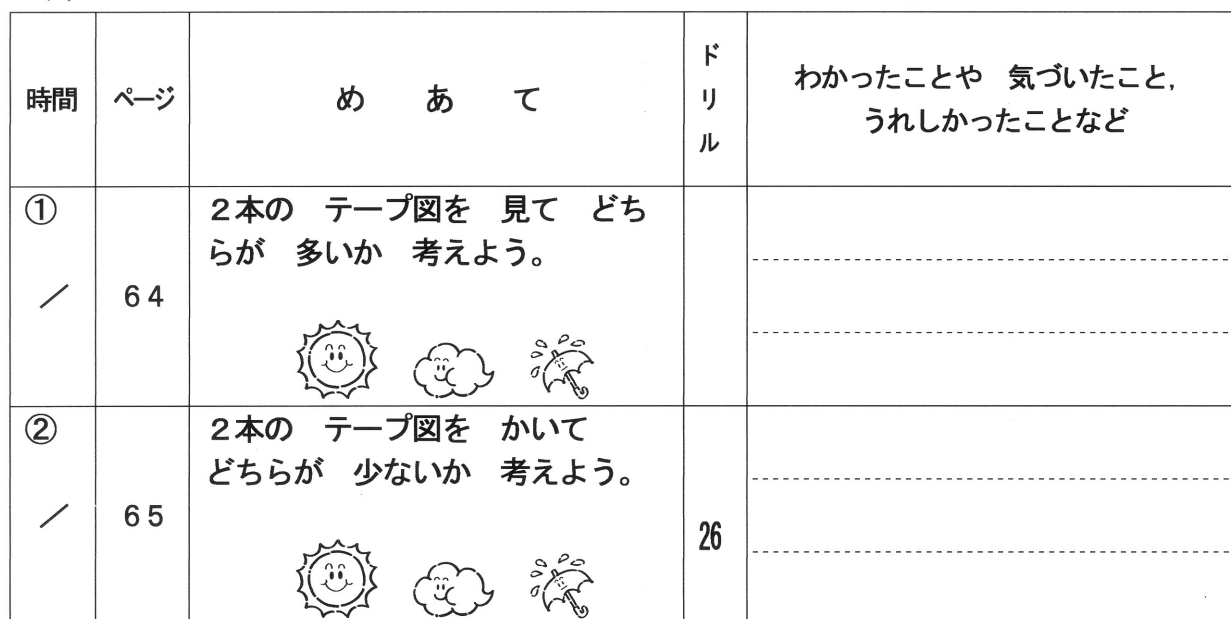 時間
ページ
め　あ　て
ドリル
わかったことや　気づいたこと,
うれしかったことなど
①
／
６４
２本の　テープ図を　見て　どち
らが　多いか　考えよう。
②
／
６５
２本の　テープ図を　かいて
どちらが　少ないか　考えよう。
26